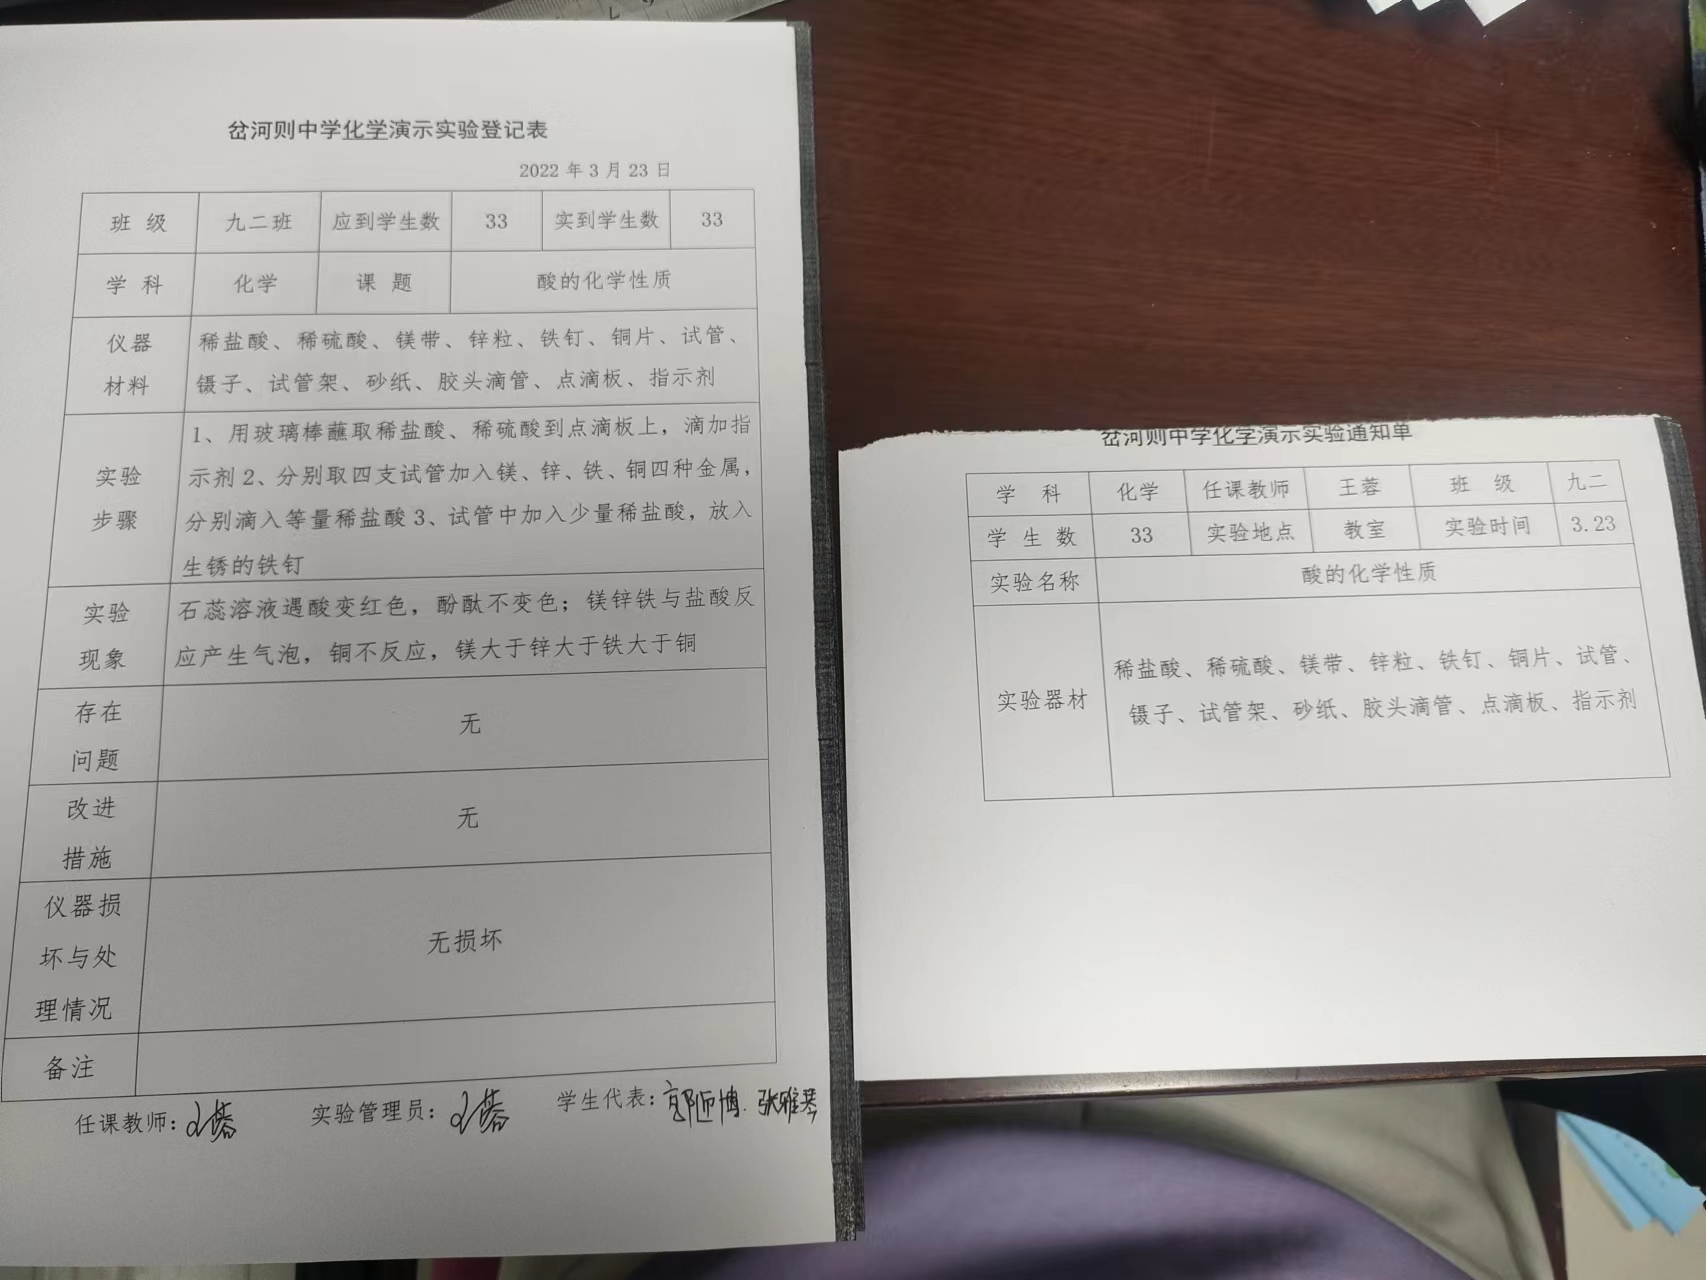 岔河则中学化学演示实验登记表
2022 年 3 月 23 日
班 级 九二班 应到学生数 33 实到学生数 33
学 科 化学 课 题 酸的化学性质
仪器 稀盐酸、稀硫酸、镁带、锌粒、铁钉、铜片、试管、
材料 镊子、试管架、砂纸、胶头滴管、点滴板、指示剂
1、用玻璃棒蘸取稀盐酸、稀硫酸到点滴板上，滴加指
实验 示剂 2、分别取四支试管加入镁、锌、铁、铜四种金属，
步骤 分别滴入等量稀盐酸 3、试管中加入少量稀盐酸，放入
生锈的铁钉
实验 石蕊溶液遇酸变红色，酚酞不变色；镁锌铁与盐酸反
现象 应产生气泡，铜不反应，镁大于锌大于铁大于铜
存在
问题
无
改进
措施
无
仪器损
坏与处
理情况
无损坏
备注
任课教师：王蓉 实验管理员：王蓉 学生代表： 张雅琴
岔河则中学化学演示实验通知单
学 科 化学 任课教师 王蓉 班 级 九二
学 生 数 33 实验地点 教室 实验时间 3.23
实验名称 酸的化学性质
实验器材
稀盐酸、稀硫酸、镁带、锌粒、铁钉、铜片、试管、
镊子、试管架、砂纸、胶头滴管、点滴板、指示剂